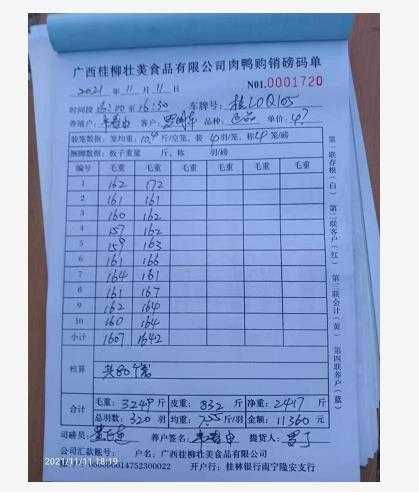 广西桂柳壮美食品有限公司肉鸭购销磅码单
2021年11月11日 NO1.0001720
时间段16:00至16:30 车牌号: 桂LOQ105
养殖户: 客户: 品种: 单价: 4.7
装笼数据,笼均重: 10.4斤/空笼,装4羽/笼,称4笼/磅
捆脚数据: 板子重量 斤,称 羽/磅
编号 毛重 毛重 毛重 毛重 毛重 毛重
1 162 172
2 161 161
3 160 162
4 157 162
5 159 163
6 161 166
7 164 161
8 161 167
9 162 164
10 160 164
小计 1607 1642
核算 共80个笼
合计 毛重: 3249斤 皮重: 832斤 净重: 2417斤
总羽数: 320羽 均重: 7.55斤/羽 金额: 11360元
司磅员: 养户签名: 提货人:
公司汇款账号: 户名: 广西桂柳壮美食品有限公司
014752300022 开户行: 桂林银行南宁隆安支行
第一联存根(白) 第二联客户(红) 第三联会计(黄) 第四联养户(蓝)
2021/11/11 18:19